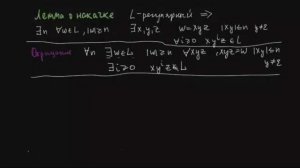 Лемма о накачке L-регулярный =>
∃n ∀w∈L, |w|≥n ∃x,y,z w=xyz |xy|≤n y≠ε
∀i≥0 xyⁱz∈L
Отрицание ∀n ∃w∈L |w|≥n ∀xyz, xyz=w |xy|≤n
y≠ε
∃i≥0 xyⁱz∉L